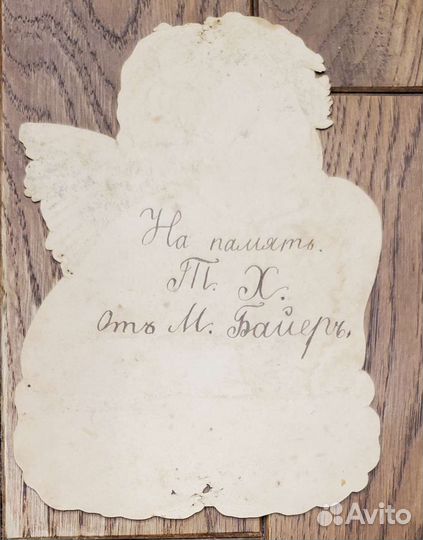 На память.
Т. Х.
Отъ М. Байеръ.
Avito